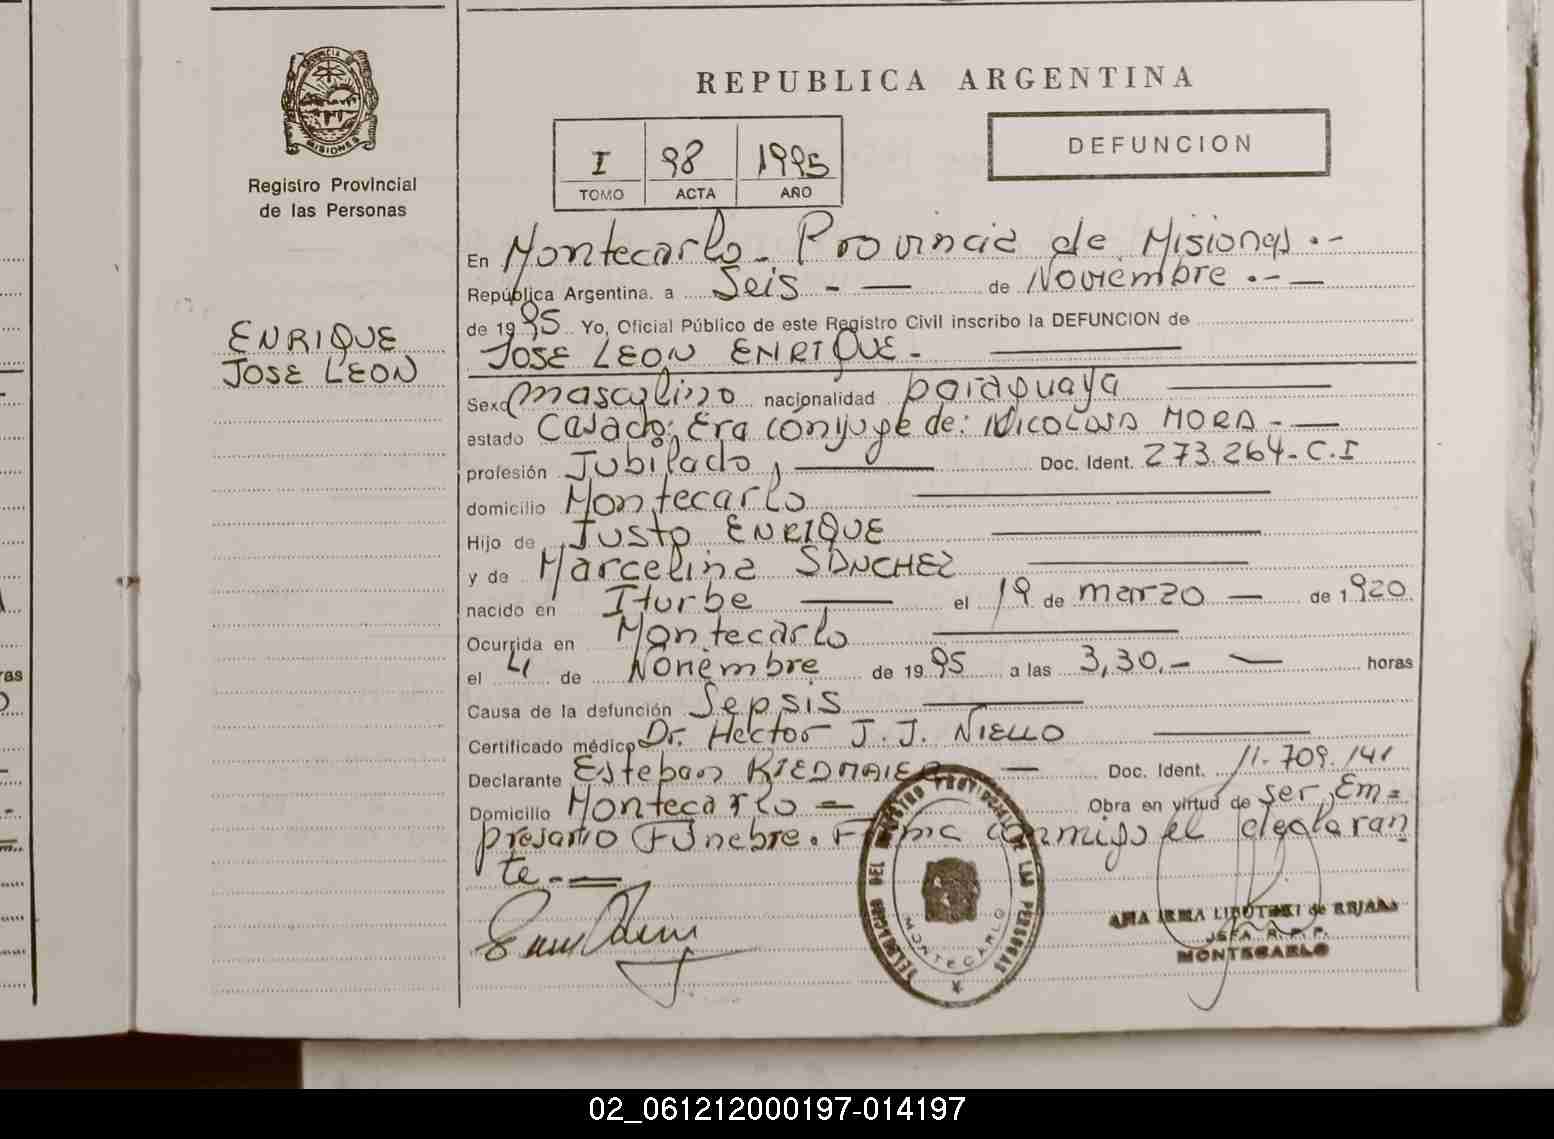 PROVINCIA DE
MISIONES
Registro Provincial
de las Personas
ENRIQUE
JOSE LEON
REPUBLICA ARGENTINA
I 98 1995
TOMO ACTA AÑO
DEFUNCION
En Montecarlo - Provincia de Misiones .-
República Argentina. a Seis - — de Noviembre .- —
de 1995 Yo, Oficial Público de este Registro Civil inscribo la DEFUNCION de
JOSE LEON ENRIQUE -
Sexo masculino nacionalidad paraguaya
estado Casado; Era cónyuge de: NICOLASA MORA - —
profesión Jubilado, Doc. Ident. 273.264 - C.I
domicilio Montecarlo
Hijo de Justo ENRIQUE
y de Marcelina SANCHEZ
nacido en Iturbe — el 19 de marzo — de 1920
Ocurrida en Montecarlo
el 4 de Noviembre de 1995 a las 3,30.- — horas
Causa de la defunción Sepsis
Certificado médico Dr. Hector J. J. NIELLO
Declarante Esteban KIEDMAIER — Doc. Ident. 11.709.141
Domicilio Montecarlo — Obra en virtud de ser Em=
presario Fúnebre. Firma conmigo el declaran
te.-
DELEGACION DEL REGISTRO PROVINCIAL DE LAS PERSONAS
MONTECARLO
ANA IRMA de REJALA
JEFA R.P.P.
MONTECARLO
02_061212000197-014197